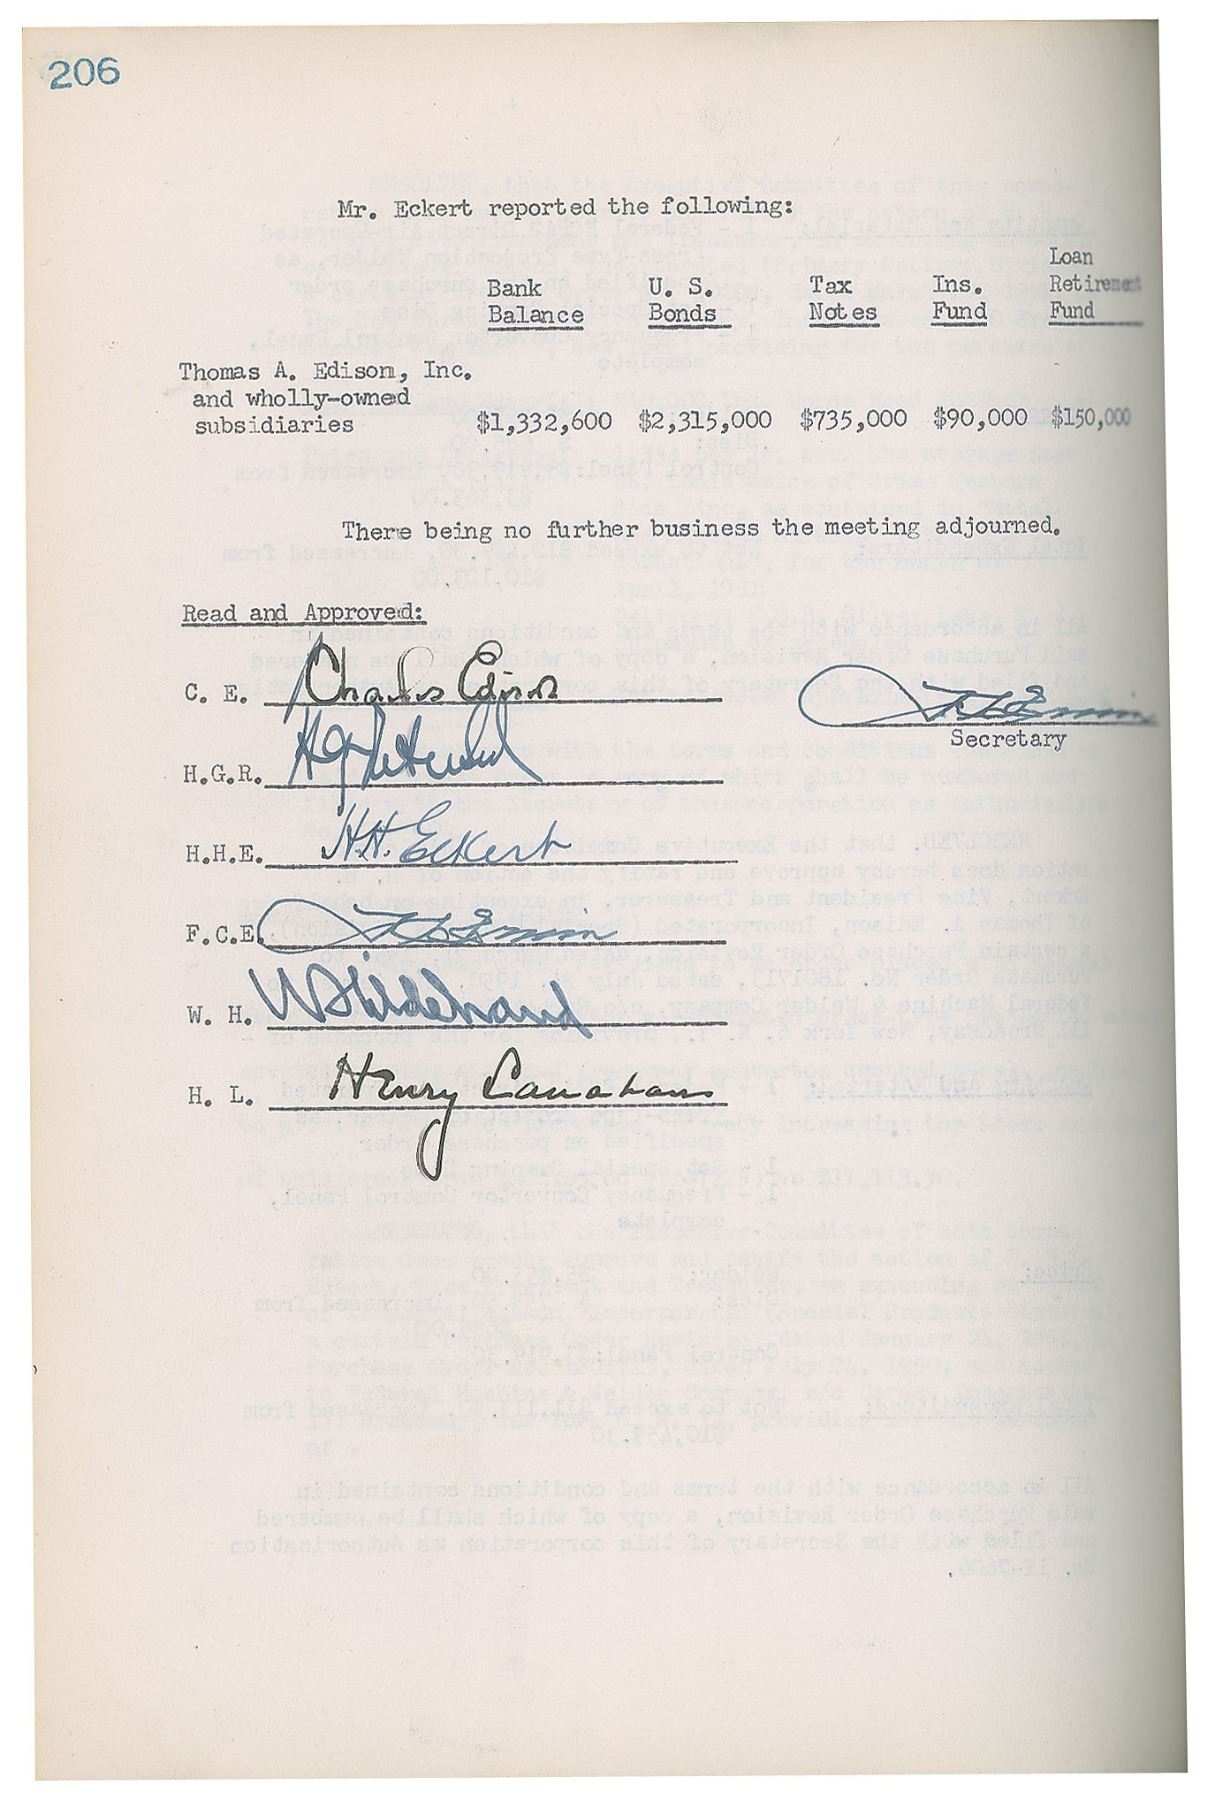 206
Mr. Eckert reported the following:
Bank Balance U. S. Bonds Tax Notes Ins. Fund Loan Retirement Fund
Thomas A. Edison, Inc.
and wholly-owned
subsidiaries $1,332,600 $2,315,000 $735,000 $90,000 $150,000
There being no further business the meeting adjourned.
Read and Approved:
C. E. Charles Edison
Secretary
H.G.R.
H.H.E. H.H. Eckert
F.C.E.
W. H. W Hildebrand
H. L. Henry Lanahan